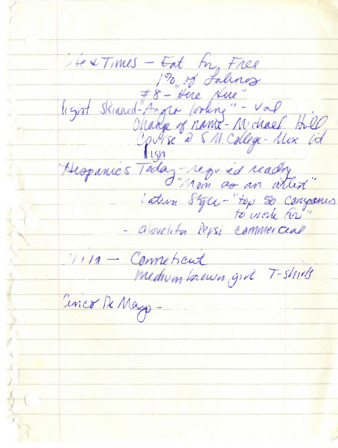 Life & Times - Eat for Free
1% of Salinas
#8 - Here Aue"
light Skinned - "Anglo looking" - Val
Change of name - Michael Hill
Course @ S.M. College - Mex Lit
Hispanics Today - required reading
"Mom as an artist"
Latina Style - "top 50 companies
to work for"
- abuelita Pepsi commercial
- Conneticut
medium brown girl T-shirts
Cinco De Mayo -